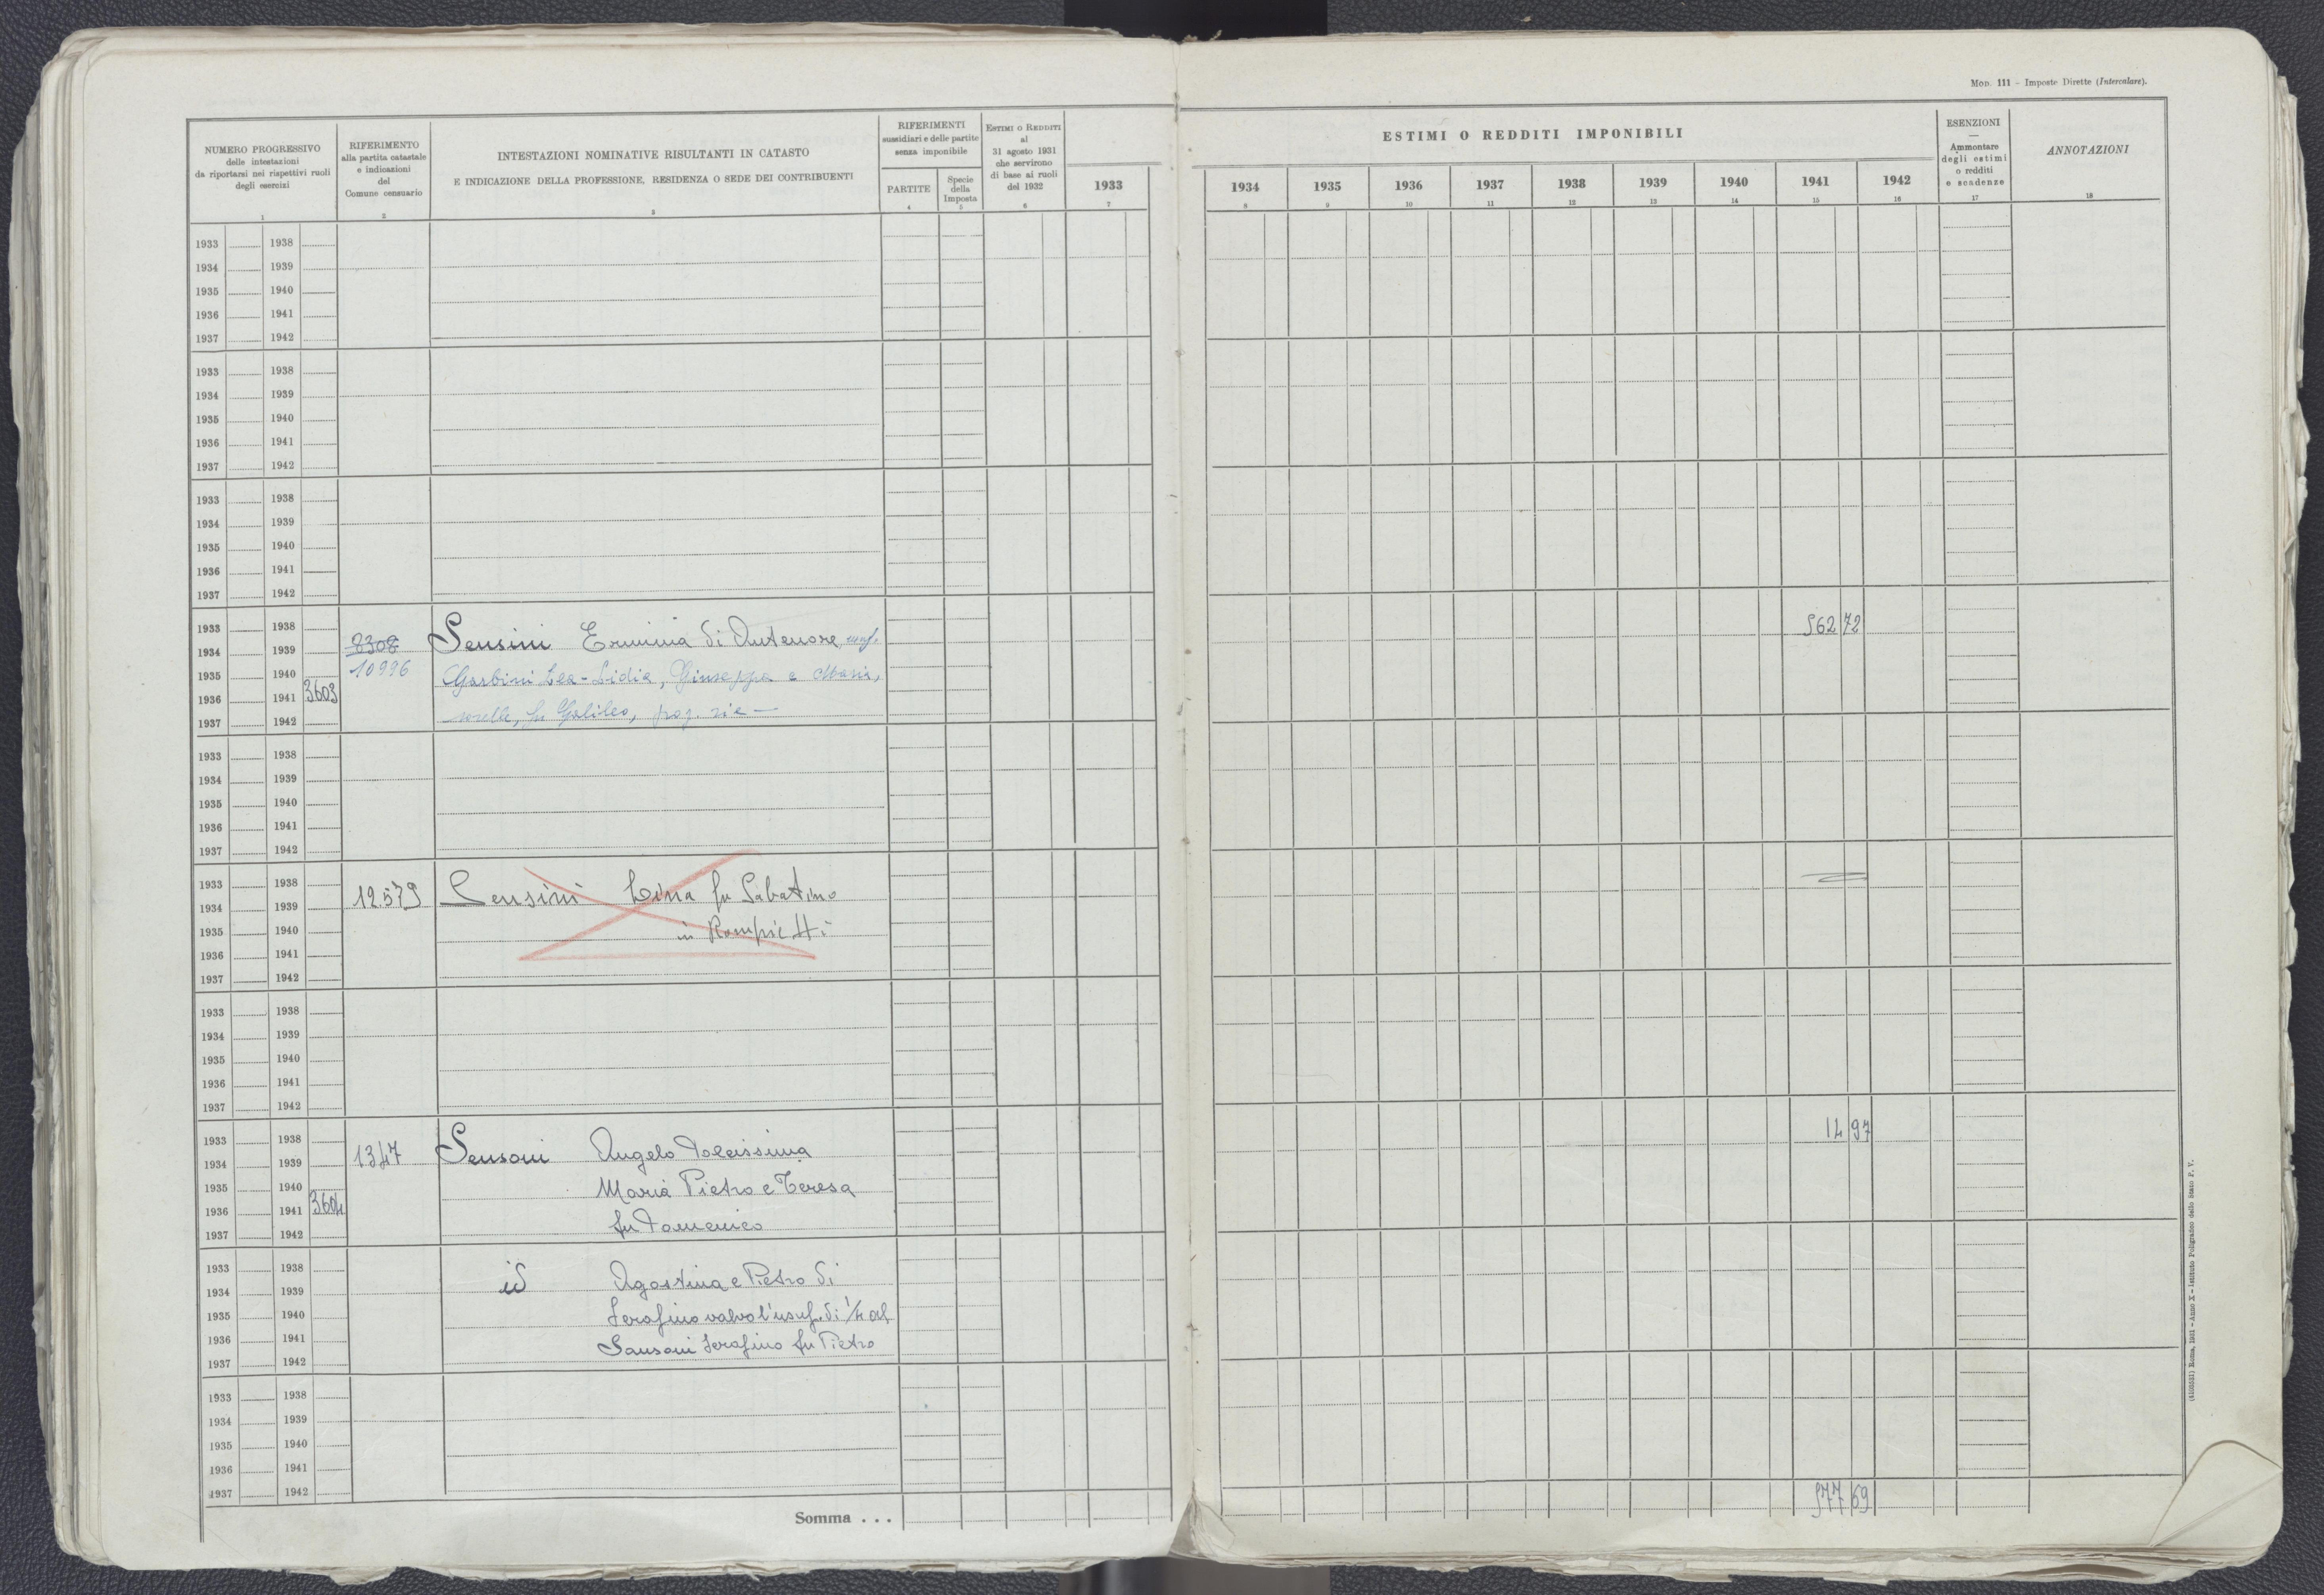 Mod. 111 - Imposte Dirette (Intercalare).
NUMERO PROGRESSIVO
delle intestazioni
da riportarsi nei rispettivi ruoli
degli esercizi
1
RIFERIMENTO
alla partita catastale
e indicazioni
del
Comune censuario
2
INTESTAZIONI NOMINATIVE RISULTANTI IN CATASTO
E INDICAZIONE DELLA PROFESSIONE, RESIDENZA O SEDE DEI CONTRIBUENTI
3
RIFERIMENTI
sussidiari e delle partite
senza imponibile
PARTITE
4
Specie
della
Imposta
5
ESTIMI O REDDITI
al
31 agosto 1931
che servirono
di base ai ruoli
del 1932
6
1933
7
ESTIMI O REDDITI IMPONIBILI
1934 1935 1936 1937 1938 1939 1940 1941 1942
8 9 10 11 12 13 14 15 16
ESENZIONI
—
Ammontare
degli estimi
o redditi
e scadenze
17
ANNOTAZIONI
18
1933 1938
1934 1939
1935 1940
1936 1941
1937 1942
1933 1938
1934 1939
1935 1940
1936 1941
1937 1942
1933 1938
1934 1939
1935 1940
1936 1941
1937 1942
1933 1938 562 72
1934 1939 2308 Sensini Erminia di Antenore, usuf.
1935 1940 10996 Garbini Lea-Lidia, Giuseppa e Maria,
1936 1941 3603
1937 1942 sorelle, fu Galileo, prop. rie —
1933 1938
1934 1939
1935 1940
1936 1941
1937 1942
1933 1938
1934 1939 12579 Sensini Lina fu Sabatino
1935 1940 in Rompietti
1936 1941
1937 1942
1933 1938
1934 1939
1935 1940
1936 1941
1937 1942
1933 1938 14 97
1934 1939 1347 Sensoni Angelo Dolcissima
1935 1940 Maria Pietro e Teresa
1936 1941 3604
1937 1942 fu Domenico
1933 1938
1934 1939 id Agostina e Pietro di
1935 1940 Serafino salvo l'usuf. di 1/4 al
1936 1941 Sansoni Serafino fu Pietro
1937 1942
1933 1938
1934 1939
1935 1940
1936 1941
1937 1942
Somma . . . 577 69
(4103531) Roma, 1931 - Anno X - Istituto Poligrafico dello Stato P. V.